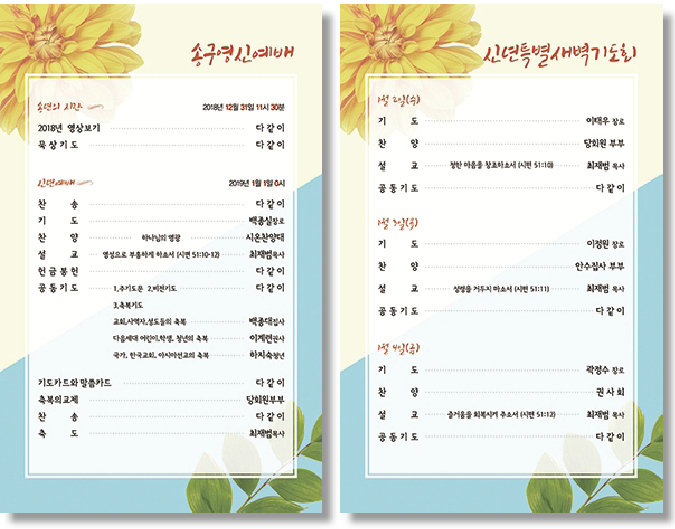 송구영신예배
송년의 시간
2018년 12월 31일 11시 30분
2018년 영상보기 다같이
묵상기도 다같이
신년예배
2019년 1월 1일 0시
찬 송 다같이
기 도 백종실장로
찬 양 하나님의 영광 시온찬양대
설 교 영성으로 부흥하게 하소서 (시편 51:10-12) 최재범목사
헌금봉헌 다같이
공동기도 1.주기도문 2.비전기도 다같이
3.축복기도
교회,사역자,성도들의 축복 백종대집사
다음세대 어린이,학생, 청년의 축복 이계련권사
국가, 한국교회, 아시아선교의 축복 하지숙청년
기도카드와 말씀카드 다같이
축복의교제 당회원부부
찬 송 다같이
축 도 최재범목사
신년특별새벽기도회
1월 2일(수)
기 도 이태우 장로
찬 양 당회원 부부
설 교 정한 마음을 창조하소서 (시편 51:10) 최재범 목사
공동기도 다같이
1월 3일(목)
기 도 이정원 장로
찬 양 안수집사 부부
설 교 성령을 거두지 마소서 (시편 51:11) 최재범 목사
공동기도 다같이
1월 4일(금)
기 도 곽정수 장로
찬 양 권사회
설 교 즐거움을 회복시켜 주소서 (시편 51:12) 최재범 목사
공동기도 다같이